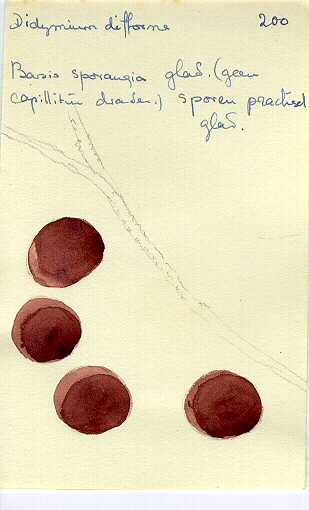 Didymium difforme 200
Basis sporangia glad. (geen
capillitium draden.) sporen practisch
glad.